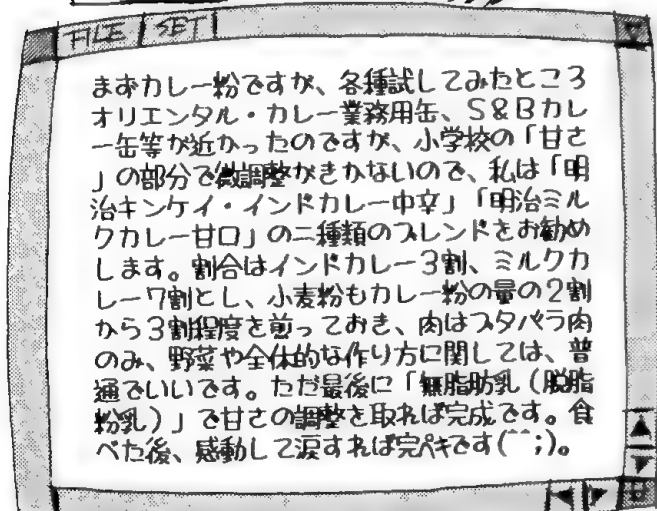 FILE SET
まずカレー粉ですが、各種試してみたところ
オリエンタル・カレー業務用缶、S&Bカレ
ー缶等が近かったのですが、小学校の「甘さ
」の部分で微調整がきかないので、私は「明
治キンケイ・インドカレー中辛」「明治ミル
クカレー甘口」の二種類のブレンドをお勧め
します。割合はインドカレー3割、ミルクカ
レー7割とし、小麦粉もカレー粉の量の2割
から3割程度を煎っておき、肉はブタバラ肉
のみ、野菜や全体的な作り方に関しては、普
通でいいです。ただ最後に「無脂肪乳(脱脂
粉乳)」で甘さの調整を取れば完成です。食
べた後、感動して涙すれば完ペキです(^^;)。